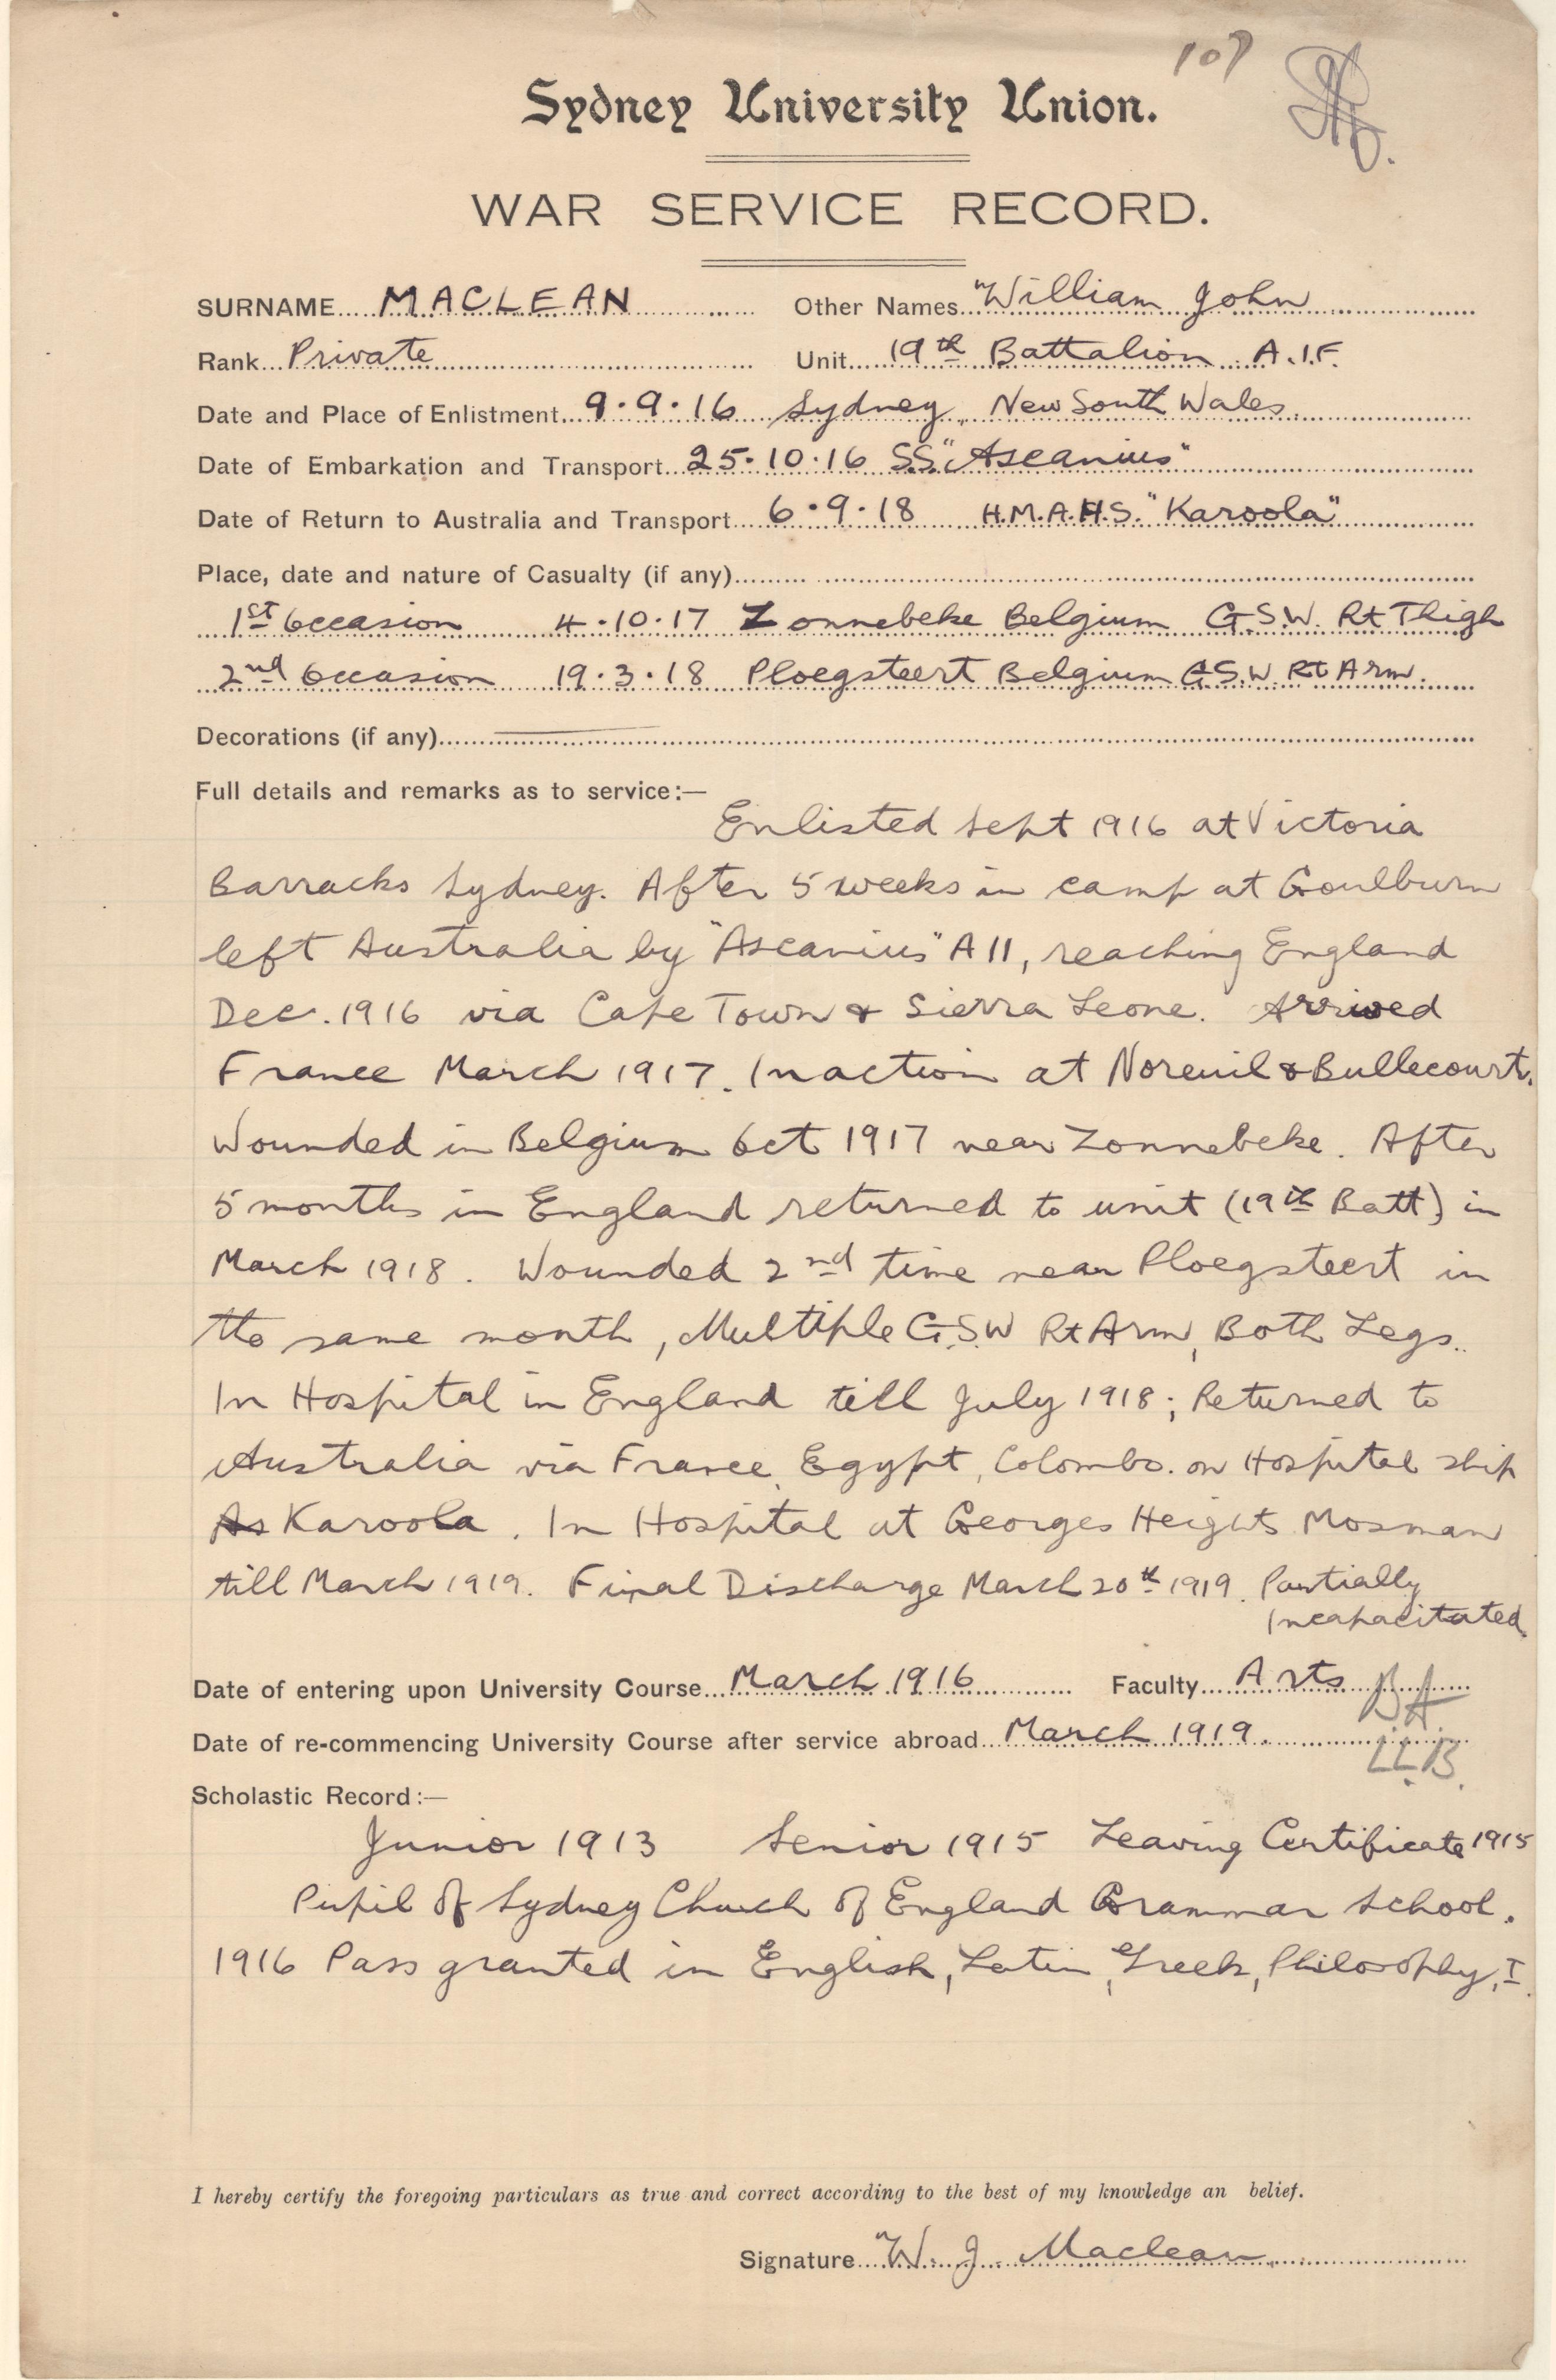 107
Sydney University Union.
WAR SERVICE RECORD.
SURNAME MACLEAN Other Names William John
Rank Private Unit 19th Battalion A.I.F.
Date and Place of Enlistment 9.9.16 Sydney, New South Wales.
Date of Embarkation and Transport 25.10.16 SS "Ascanius"
Date of Return to Australia and Transport 6.9.18 H.M.A.H.S. "Karoola"
Place, date and nature of Casualty (if any)
1st Occasion 4.10.17 Zonnebeke Belgium G.S.W. Rt Thigh
2nd Occasion 19.3.18 Ploegsteert Belgium G.S.W. Rt Arm.
Decorations (if any)
Full details and remarks as to service:—
Enlisted Sept 1916 at Victoria
Barracks Sydney. After 5 weeks in camp at Goulburn
left Australia by "Ascanius" A11, reaching England
Dec. 1916 via Cape Town & Sierra Leone. Arrived
France March 1917. In action at Noreuil & Bullecourt.
Wounded in Belgium Oct 1917 near Zonnebeke. After
5 months in England returned to unit (19th Batt) in
March 1918. Wounded 2nd time near Ploegsteert in
the same month, Multiple G.S.W Rt Arm, Both Legs.
In Hospital in England till July 1918; Returned to
Australia via France, Egypt, Colombo. on Hospital ship
As Karoola. In Hospital at Georges Heights Mosman
till March 1919. Final Discharge March 20th 1919. Partially
Incapacitated.
Date of entering upon University Course March 1916 Faculty Arts BA
Date of re-commencing University Course after service abroad March 1919. LL.B.
Scholastic Record:—
Junior 1913 Senior 1915 Leaving Certificate 1915
Pupil of Sydney Church of England Grammar School.
1916 Pass granted in English, Latin, Greek, Philosophy, I.
I hereby certify the foregoing particulars as true and correct according to the best of my knowledge an belief.
Signature W. J. Maclean